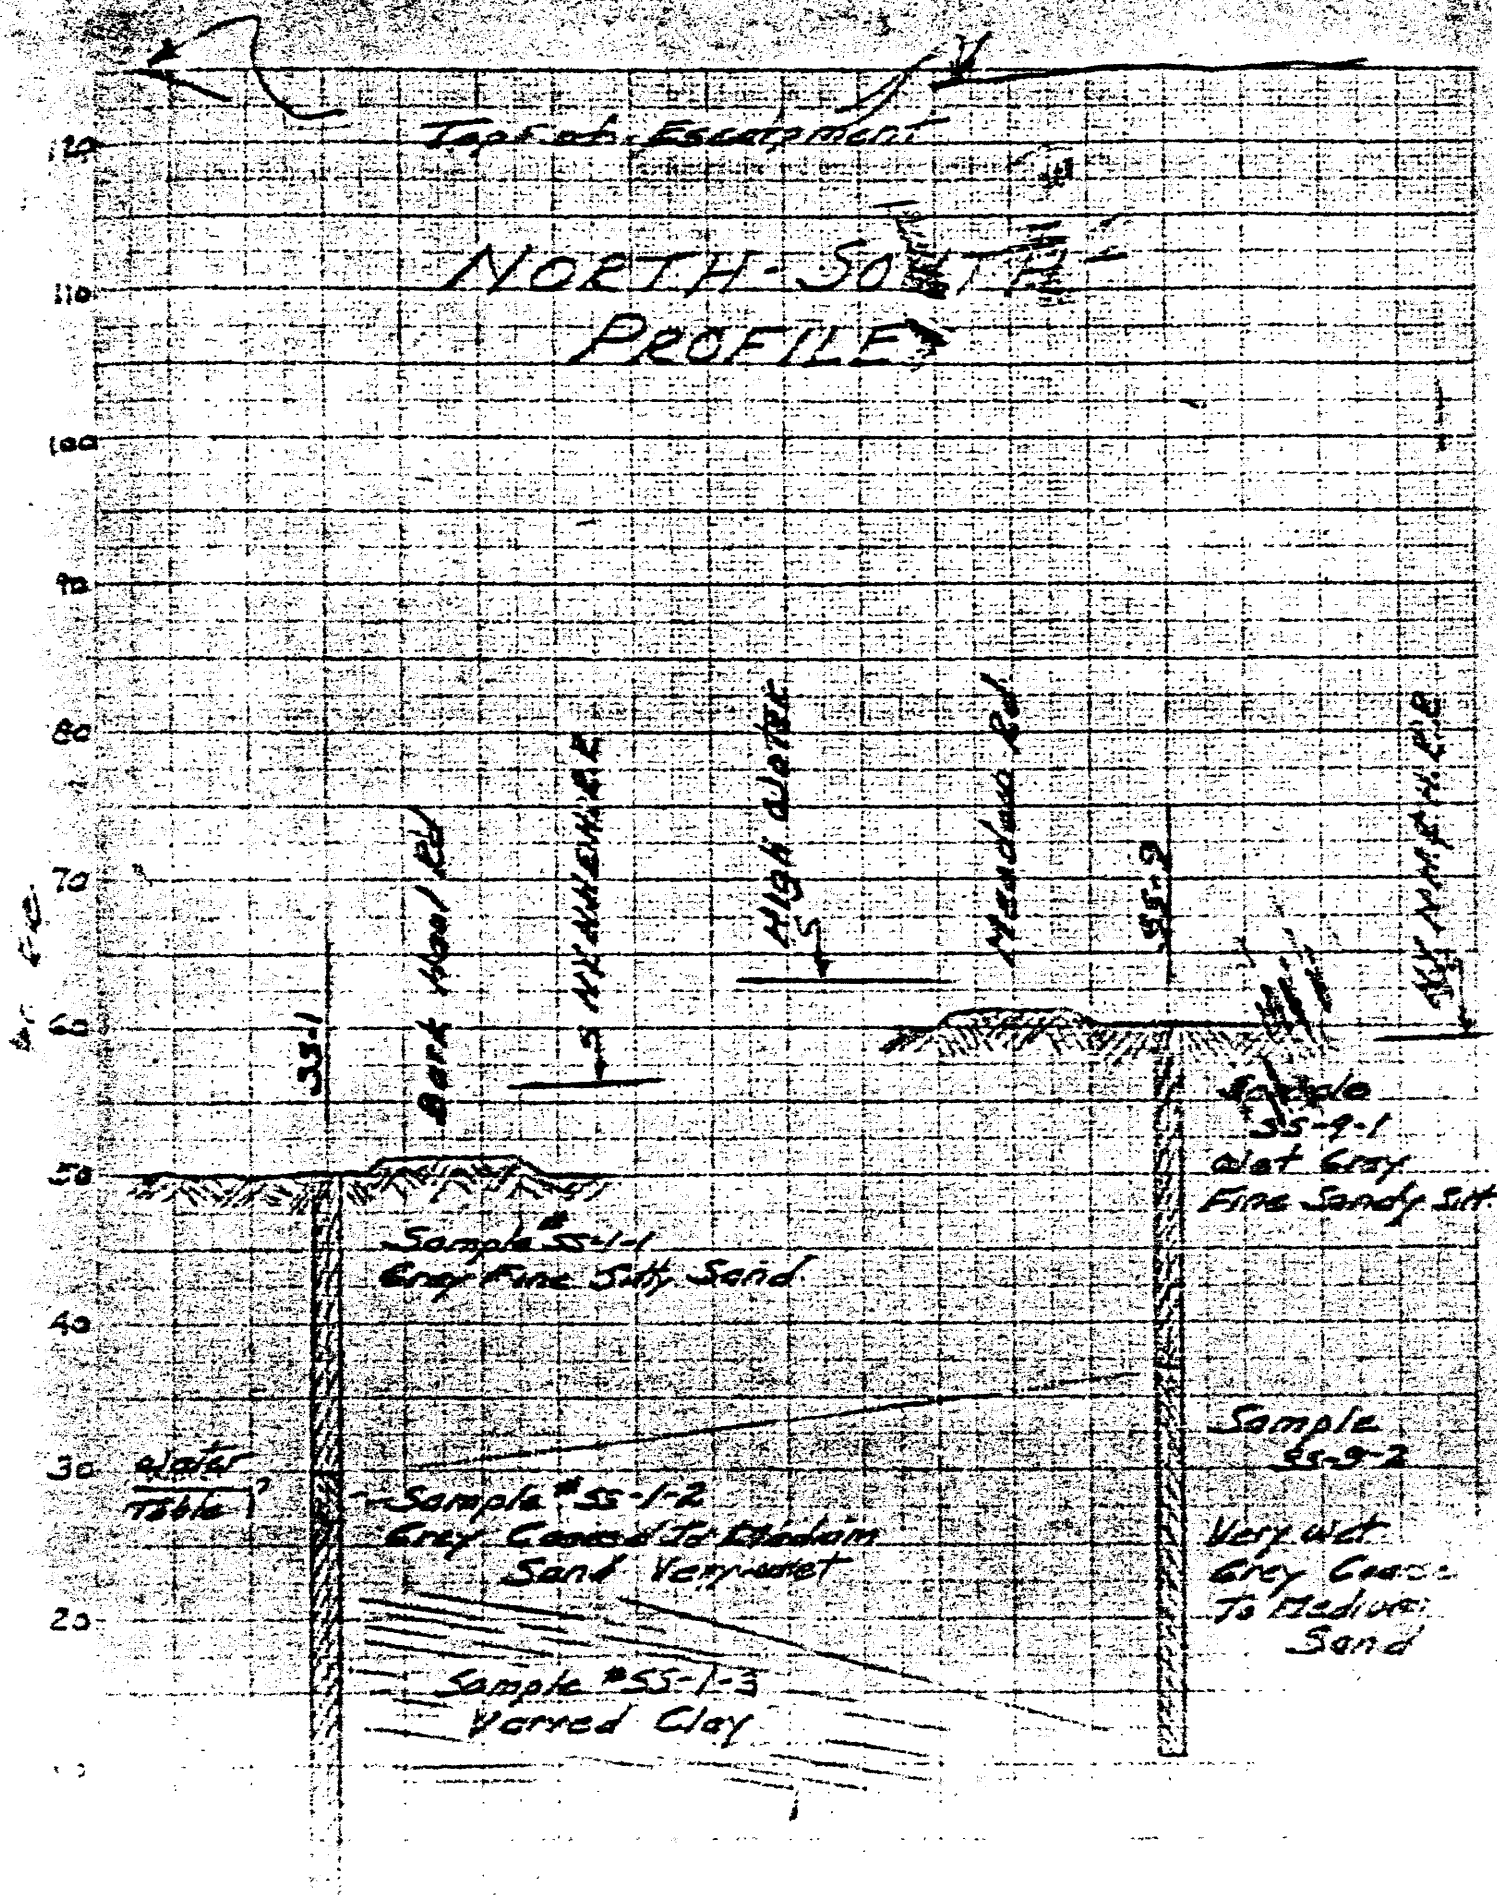 Top of Escarpment
NORTH-SOUTH
PROFILE
120
110
100
90
80
70
60
50
40
30
20
SS-1
Bark Haul Rd
High Water
Meadow Rd
SS-9
Sample
SS-9-1
Wet Grey
Fine Sandy Silt
Sample # SS-1-1
Grey Fine Silty Sand
Water
Table ?
Sample # SS-1-2
Grey Coarse To Medium
Sand Very wet
Sample
SS-9-2
Very wet
Grey Coarse
To Medium
Sand
Sample # SS-1-3
Varved Clay